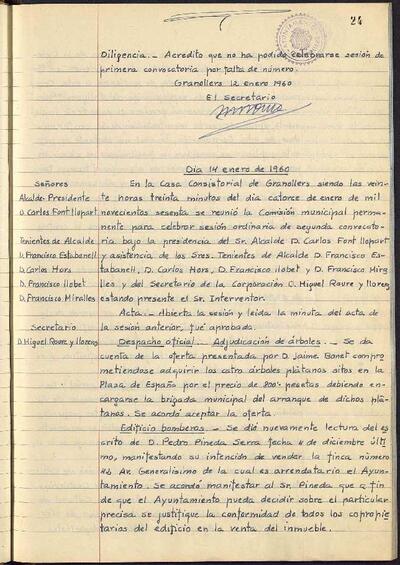 24
Diligencia.- Acredito que no ha podido celebrarse sesión de
primera convocatoria por falta de número.
Granollers 12 enero 1960
El Secretario
Dia 14 enero de 1960
Señores
Alcalde-Presidente
D. Carlos Font llopart
Tenientes de Alcalde
D. Francisco Estabanell
D. Carlos Hors
D. Francisco llobet
D. Francisco Miralles
Secretario
D. Miguel Raure y llorens
En la Casa Consistorial de Granollers siendo las vein-
te horas treinta minutos del dia catorce de enero de mil
novecientos sesenta se reunió la Comisión municipal perma-
nente para celebrar sesión ordinaria de segunda convocato-
ria bajo la presidencia del Sr. Alcalde D. Carlos Font llopart
y asistencia de los Sres. Tenientes de Alcalde D. Francisco Es-
tabanell, D. Carlos Hors, D. Francisco llobet y D. Francisco Mira
lles y del Secretario de la Corporación D. Miguel Raure y llorens
estando presente el Sr. Interventor.
Acta.- Abierta la sesión y leida la minuta del acta de
la sesión anterior, fué aprobada.
Despacho oficial. Adjudicación de árboles.- Se da
cuenta de la oferta presentada por D. Jaime Bonet compro
metiendose adquirir los catro árboles plátanos sitos en la
Plaza de España por el precio de 800'- pesetas debiendo en-
cargarse la brigada municipal del arranque de dichos plá-
tanos. Se acordó aceptar la oferta.
Edificio bomberos.- Se dió nuevamente lectura del es
crito de D. Pedro Pineda Serra fecha 4 de diciembre últi
mo, manifestando su intención de vender la finca número
Av. Generalisimo de la cual es arrendatario el Ayun-
tamiento. Se acordó manifestar al Sr. Pineda que a fin
de que el Ayuntamiento pueda decidir sobre el particular
precisa se justifique la conformidad de todos los copropie-
tarios del edificio en la venta del inmueble.